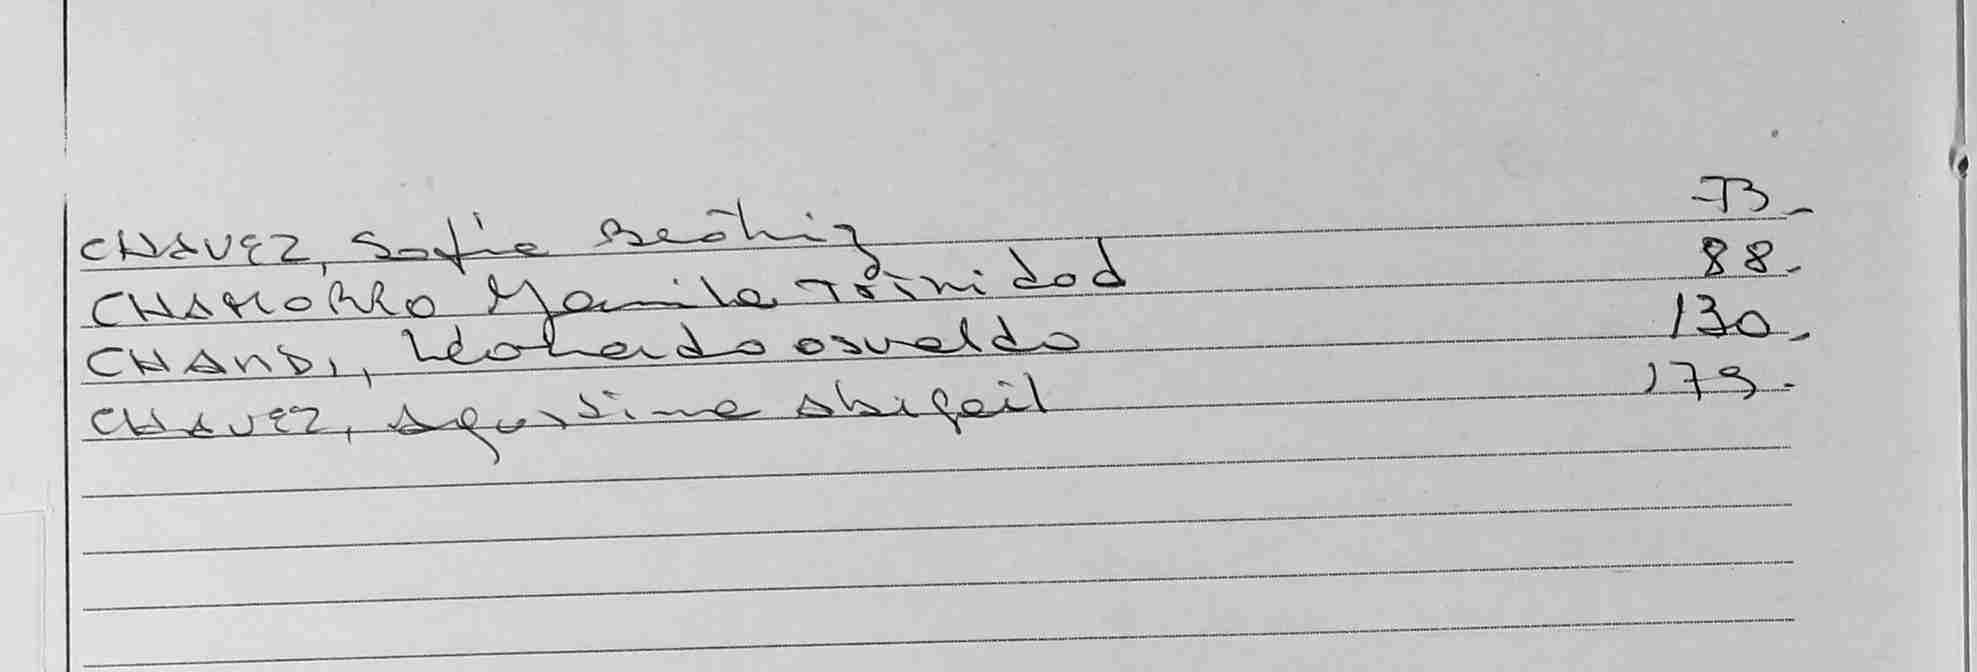 CHAVEZ, Sofia Beatriz 73-
CHAMORRO Yamila Trinidad 88-
CHANDI, Leonardo Osvaldo 130-
CHAVEZ, Agustina Abigail 179-